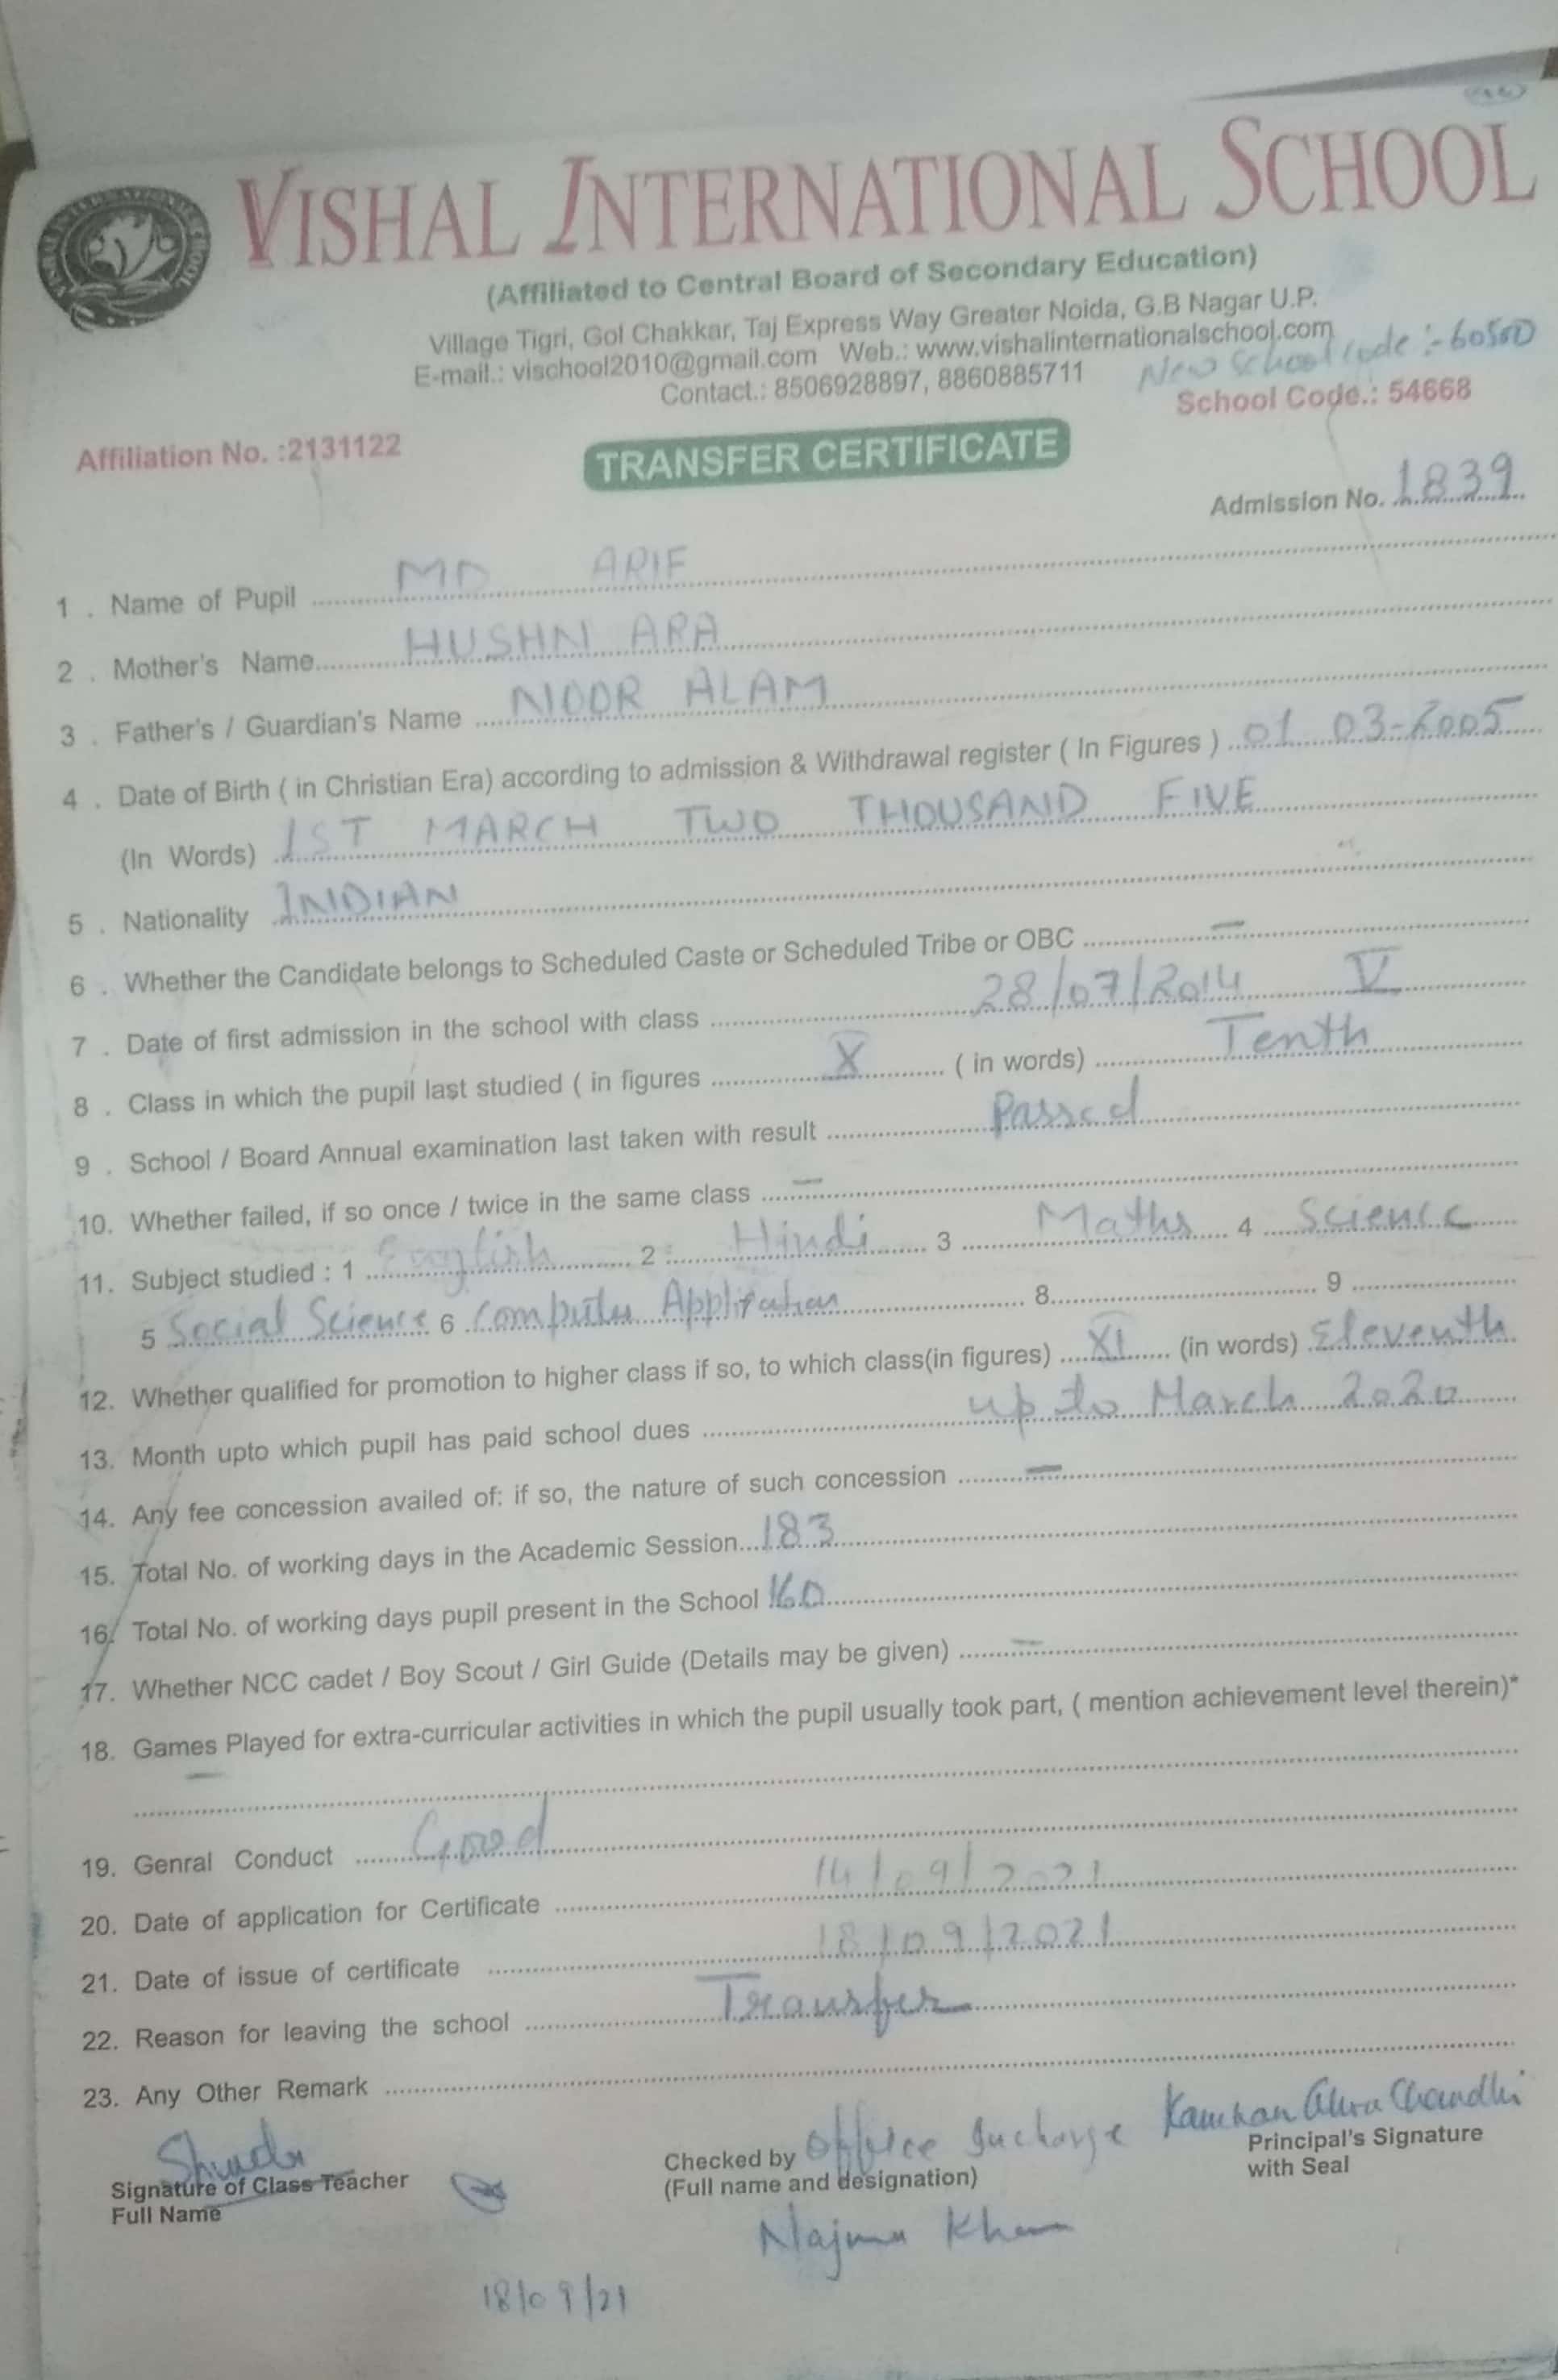 VISHAL INTERNATIONAL SCHOOL
(Affiliated to Central Board of Secondary Education)
Village Tigri, Gol Chakkar, Taj Express Way Greater Noida, G.B Nagar U.P.
E-mail.: vischool2010@gmail.com Web.: www.vishalinternationalschool.com
New School code :- 60500
Contact.: 8506928897, 8860885711
School Code.: 54668
Affiliation No. :2131122
TRANSFER CERTIFICATE
Admission No. 1839
1 . Name of Pupil MD ARIF
2 . Mother's Name HUSHN ARA
3 . Father's / Guardian's Name NOOR ALAM
4 . Date of Birth ( in Christian Era) according to admission & Withdrawal register ( In Figures ) 01 03-2005
(In Words) 1ST MARCH TWO THOUSAND FIVE
5 . Nationality INDIAN
6 . Whether the Candidate belongs to Scheduled Caste or Scheduled Tribe or OBC –
7 . Date of first admission in the school with class 28/07/2014 V
8 . Class in which the pupil last studied ( in figures X ( in words) Tenth
9 . School / Board Annual examination last taken with result Passed
10. Whether failed, if so once / twice in the same class –
11. Subject studied : 1 English 2 Hindi 3 Maths 4 Science
5 Social Science 6 Computer Application 8 9
12. Whether qualified for promotion to higher class if so, to which class(in figures) XI (in words) Eleventh
13. Month upto which pupil has paid school dues up to March 2020
14. Any fee concession availed of: if so, the nature of such concession –
15. Total No. of working days in the Academic Session 183
16. Total No. of working days pupil present in the School 160
17. Whether NCC cadet / Boy Scout / Girl Guide (Details may be given) –
18. Games Played for extra-curricular activities in which the pupil usually took part, ( mention achievement level therein)*
–
19. Genral Conduct Good
20. Date of application for Certificate 14/09/2021
21. Date of issue of certificate 18/09/2021
22. Reason for leaving the school Transfer
23. Any Other Remark
Signature of Class Teacher
Full Name
Checked by Office Incharge
(Full name and designation)
Najma Khan
Principal's Signature
with Seal
18/09/21